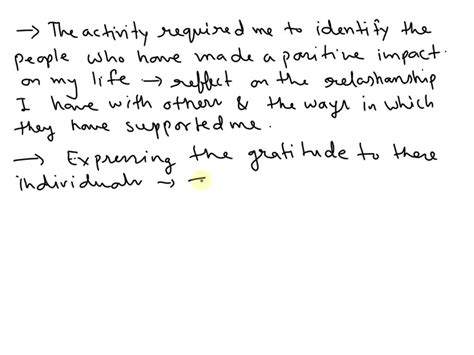 → The activity required me to identify the
people who have made a positive impact.
on my life → reflect on the relashanship
I have with others & the ways in which
they have supported me.
→ Expressing the gratitude to these
individuals →